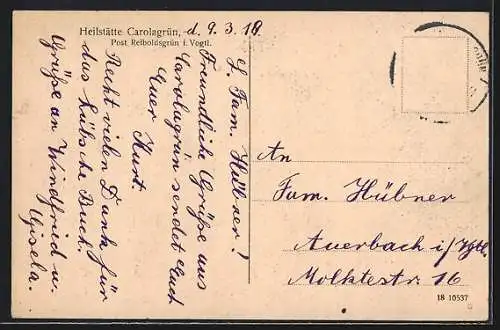 Heilstätte Carolagrün, d. 9. 3. 18
Post Reiboldsgrün i. Vogtl.
L. Fam. Hübner!
Freundliche Grüße aus
Carolagrün sendet Euch
Euer Kurt.
Recht vielen Dank für
das hübsche Buch.
Grüße an Windfrid u.
Gisela.
An
Fam. Hübner
Auerbach i/Vgtl.
Molktestr. 16
18 10537